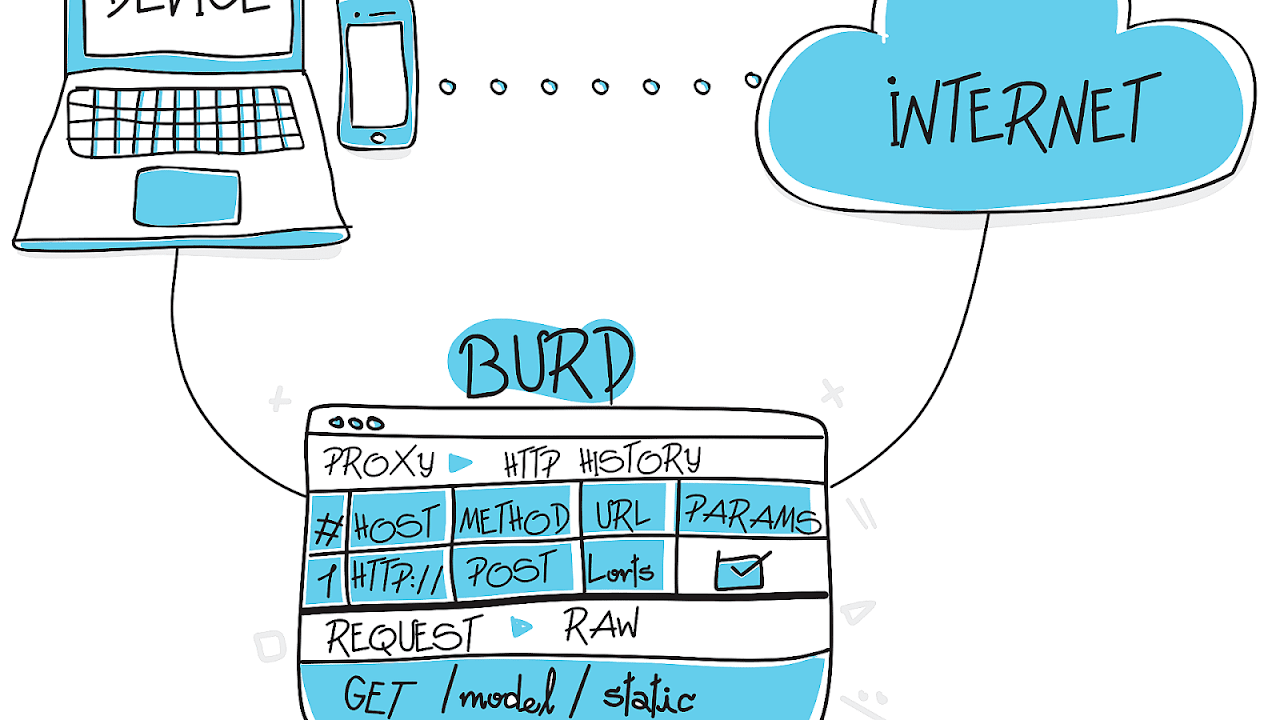 DEVICE
INTERNET
BURP
PROXY HTTP HISTORY
# HOST METHOD URL PARAMS
1 HTTP:// POST Lorts
REQUEST RAW
GET /model/static